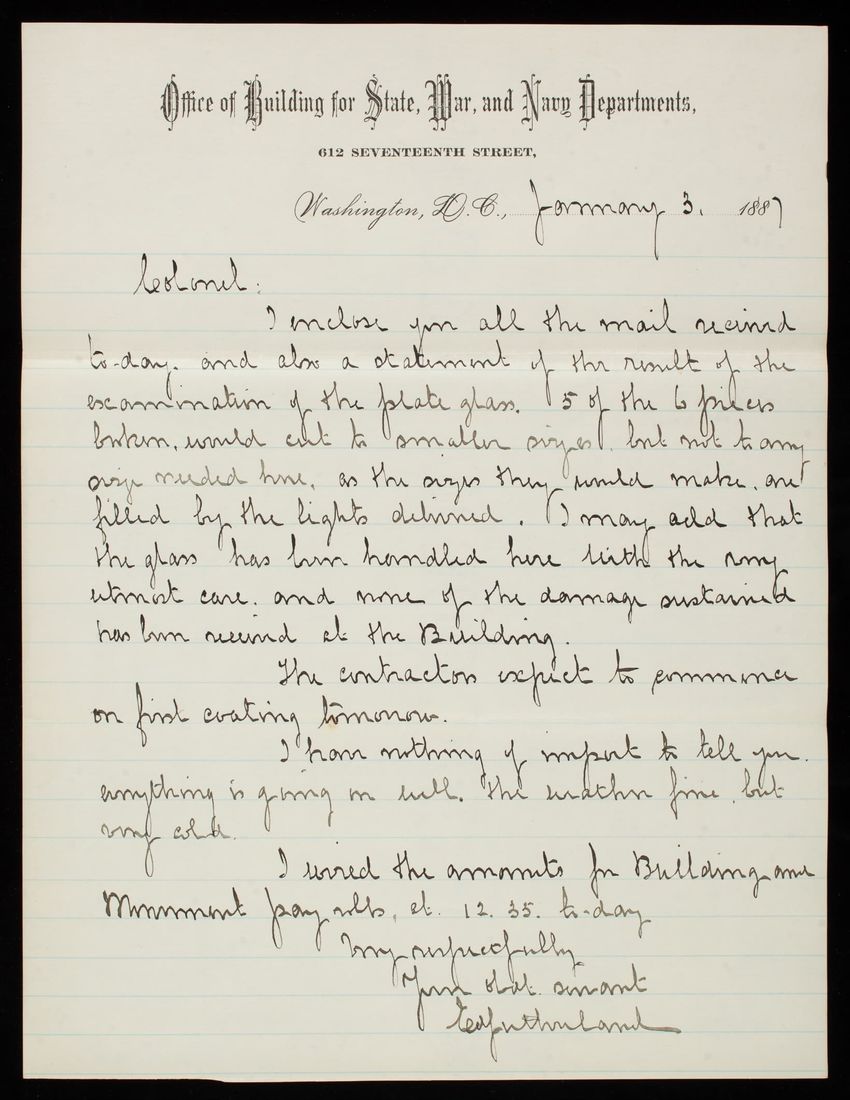 Office of Building for State, War, and Navy Departments,
612 SEVENTEENTH STREET,
Washington, D.C., January 3. 1887
Colonel:
I enclose you all the mail received
to-day. and also a statement of the result of the
examination of the plate glass. 5 of the 6 pieces
broken, would cut to smaller sizes, but not to any
size needed here, as the sizes they would make, are
filled by the lights delivered. I may add that
the glass has been handled here with the very
utmost care. and none of the damage sustained
has been received at the Building.
The contractors expect to commence
on first coating tomorrow.
I have nothing of import to tell you.
everything is going on well. The weather fine, but
very cold.
I wired the amounts for Building and
Monument pay rolls, at 12.35. to-day
Very respectfully
Your obdt. servant